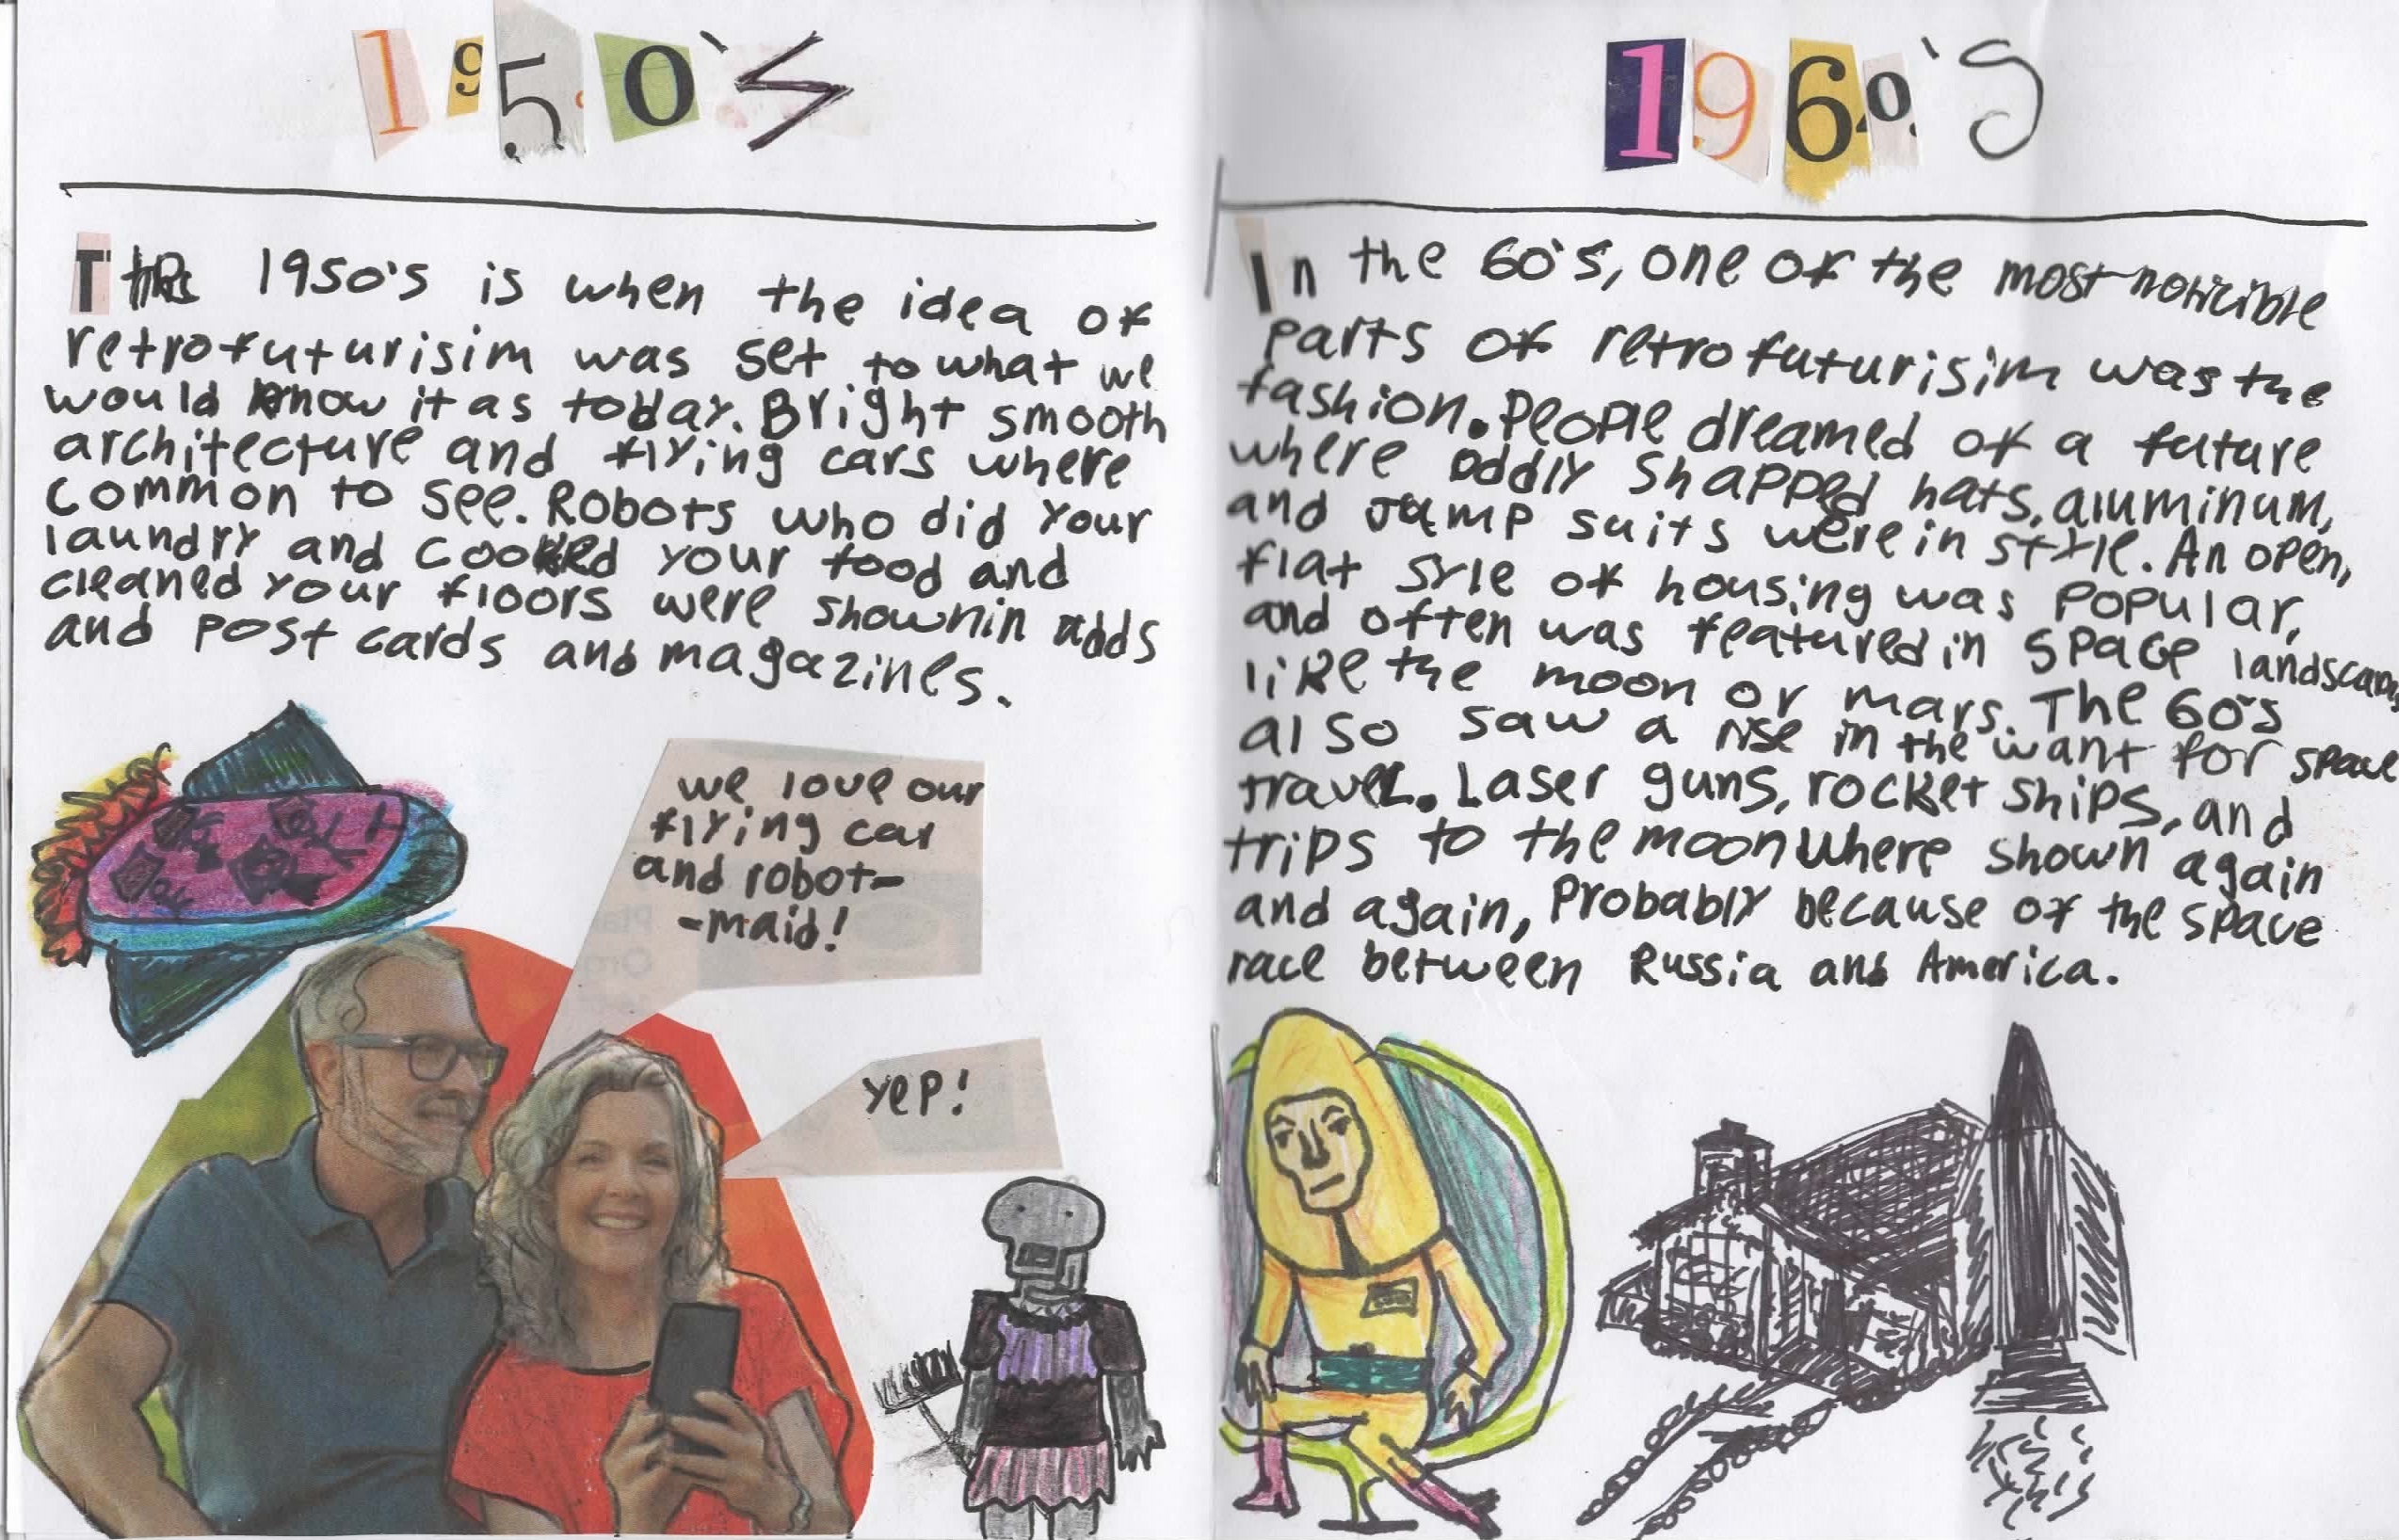 1950's
The 1950's is when the idea of
retrofuturisim was set to what we
would know it as today. Bright smooth
architecture and flying cars where
common to see. Robots who did your
laundry and cooked your food and
cleaned your floors were shown in adds
and post cards and magazines.
we love our
flying car
and robot-
-maid!
yep!
1960's
In the 60's, one of the most noticible
parts of retrofuturisim was the
fashion. People dreamed of a future
where oddly shapped hats, aluminum,
and jump suits were in style. An open,
flat syle of housing was popular,
and often was featured in space landscapes
like the moon or mars. The 60's
also saw a rise in the want for space
travel. Laser guns, rocket ships, and
trips to the moon where shown again
and again, probably because of the space
race between Russia and America.